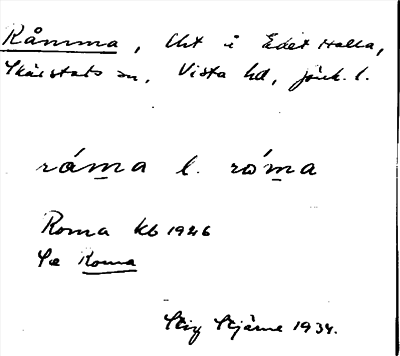 Råmma, Uht i Edet Malla,
Skärstads sn, Vista hd, jönk. l.
ráma l. róma
Roma kb 1926
Se Roma
Stig Stjärne 1934.